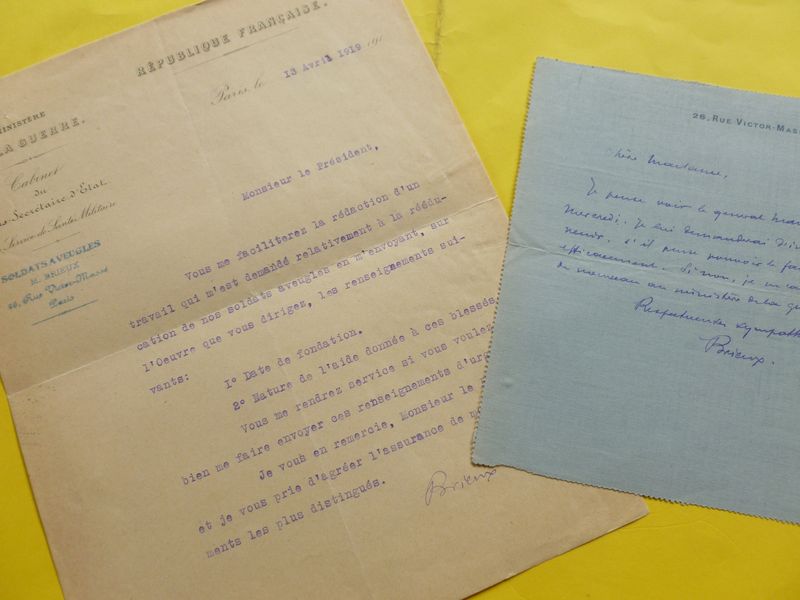 RÉPUBLIQUE FRANÇAISE.
Paris, le 13 Avril 1919 191
MINISTÈRE
LA GUERRE.
Cabinet
du
Secrétaire d'État
Service de Santé Militaire
SOLDATS AVEUGLES
M. BRIEUX
26, Rue Victor-Massé
Paris
Monsieur le Président,
Vous me faciliterez la rédaction d'un
travail qui m'est demandé relativement à la réédu-
cation de nos soldats aveugles en m'envoyant, sur
l'Oeuvre que vous dirigez, les renseignements sui-
vants:
1° Date de fondation.
2° Nature de l'aide donnée à ces blessés
Vous me rendrez service si vous voulez
bien me faire envoyer ces renseignements d'urg
Je vous en remercie, Monsieur le
et je vous prie d'agréer l'assurance de m
ments les plus distingués.
Brieux
26, RUE VICTOR-MAS
Chère Madame,
Je peux voir le général
mercredi. Je lui demanderai
s'il peut
efficacement. Sinon, je
de nouveau au ministère de la gu
Respectueuse sympath
Brieux.